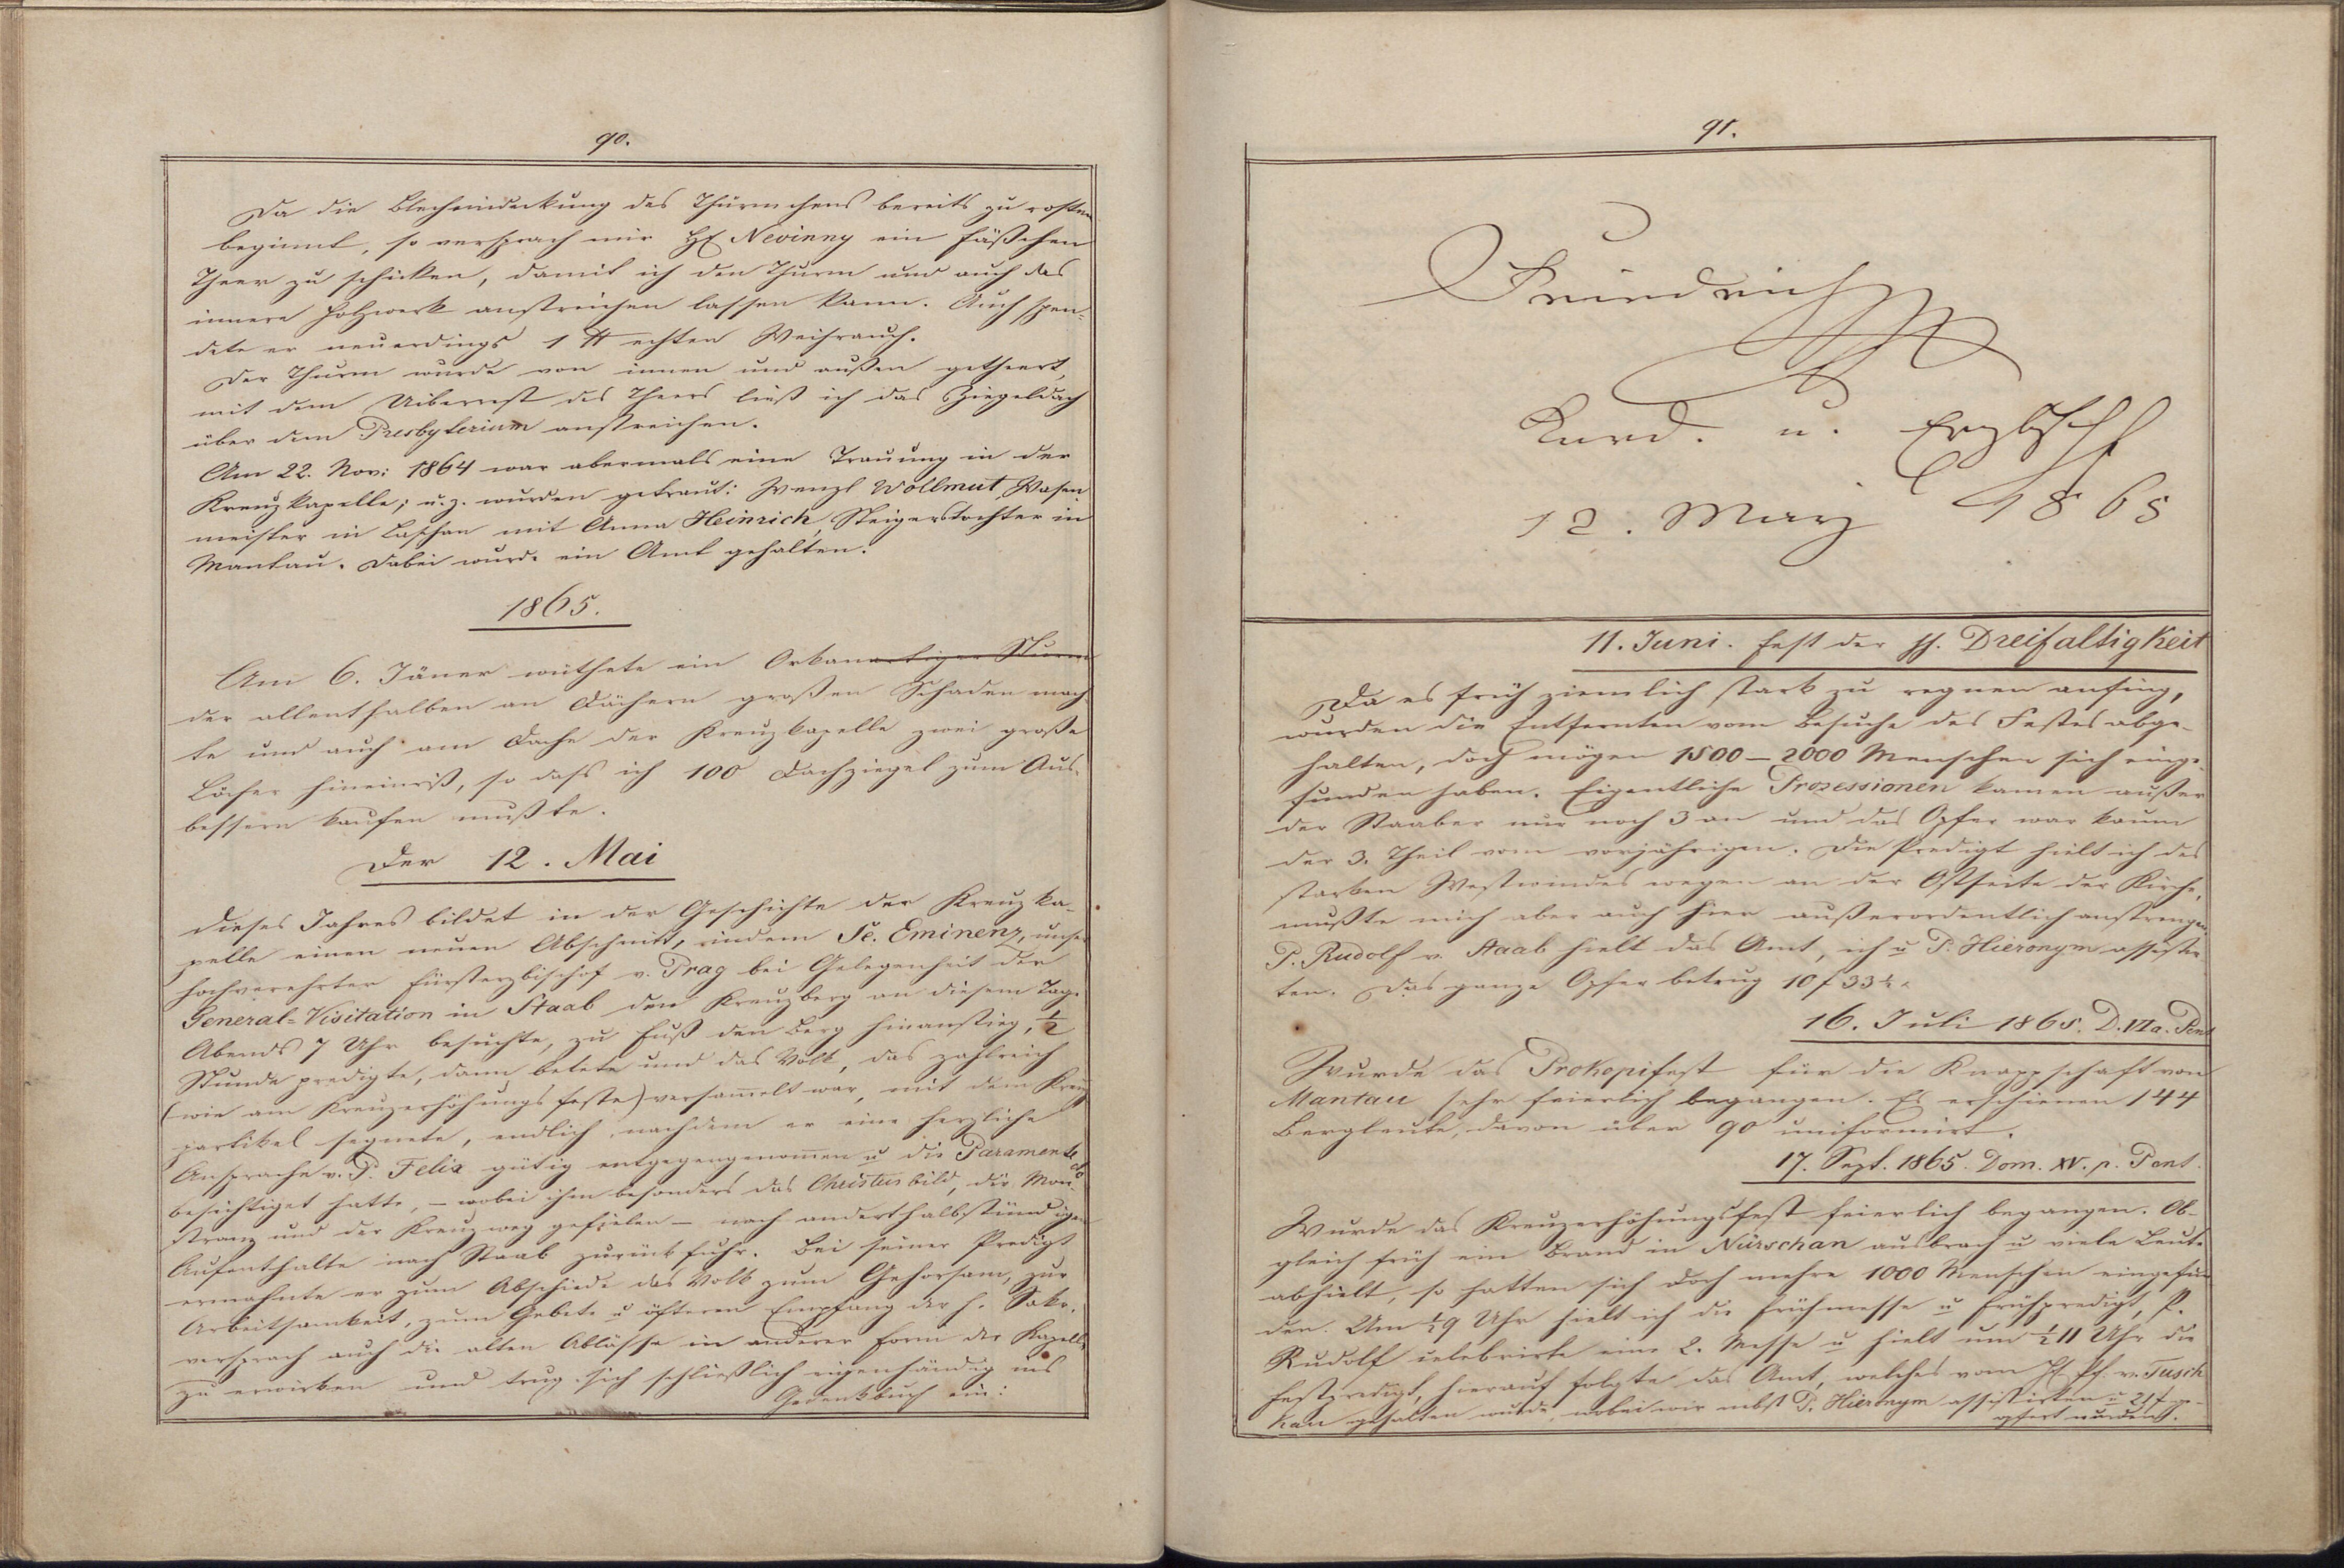 90.
Da die Blecheindeckung des Thürmchens bereits zu rosten
beginnt, so versprach mir H Nevinny ein Fäßchen
Theer zu schicken, damit ich den Thurm und auch das
innere Holzwerk anstreichen lassen kann. Auch spen-
dete er neuerdings 1 ℔ echten Weihrauch.
Der Thurm wurde von innen und außen getheert,
mit dem Uiberrest des Theers ließ ich das Ziegeldach
über dem Presbyterium anstreichen.
Am 22. Nov: 1864 war abermals eine Trauung in der
Kreuzkapelle; u. z. wurden getraut: Wenzl Wollmut, Wasen
meister in Laschan mit Anna Heinrich, Steigerstochter in
Mantau. Dabei wurde ein Amt gehalten.
1865.
Am 6. Jäner wüthete ein Orkanartiger Sturm
der allenthalben an Dächern großen Schaden mach
te und auch am Dache der Kreuzkapelle zwei große
Löcher hineinriß, so daß ich 100 Dachziegel zum Aus-
bessern kaufen mußte.
Der 12. Mai
dieses Jahres bildet in der Geschichte der Kreuzka-
pelle einen neuen Abschnitt, indem Se. Eminenz, unser
hochverehrter Fürsterzbischof v. Prag bei Gelegenheit der
General-Visitation in Staab den Kreuzberg an diesem Tage
Abends 7 Uhr besuchte, zu Fuß den Berg hinanstieg, ½
Stunde predigte, dann betete und das Volk, das zahlreich
(wie am Kreuzerhöhungsfeste) versammelt war, mit dem Kreuz
partikel segnete, endlich, nachdem er eine herzliche
Ansprache v. P. Felix gütig entgegengenommen u die Paramente
besichtiget hatte, – wobei ihm besonders das Christusbild, die Mon-
stranz und der Kreuzweg gefielen – nach anderthalbstündigem
Aufenthalte nach Staab zurückfuhr. Bei seiner Predigt
ermahnte er zum Abschiede das Volk zum Gehorsam, zur
Arbeitsamkeit, zum Gebete u öfteren Empfang der h. Sakr.
versprach auch die alten Ablässe in anderer Form der Kapelle
zu erwirken und trug sich schließlich eigenhändig ins
Gedenkbuch ein:
91.
Friedrich
Kard. u. Erzbschf
12. Mai 1865
11. Juni. Fest der hh. Dreifaltigkeit
Da es früh ziemlich stark zu regnen anfing,
wurden die Entfernten vom Besuche des Festes abge-
halten, doch mögen 1500 – 2000 Menschen sich einge-
funden haben. Eigentliche Prozessionen kamen außer
der Staaber nur noch 3 an und das Opfer war kaum
der 3. Theil vom vorjährigen. Die Predigt hielt ich des
starken Westwindes wegen an der Ostseite der Kirche,
mußte mich aber auch hier außerordentlich anstrengen
P. Rudolf v. Staab hielt das Amt, ich u P. Hieronym assistir
ten. Das ganze Opfer betrug 10 f 33 k.
16. Juli 1865. D. VI a. Pent
Wurde das Prokopifest für die Knappschaft von
Mantau sehr feierlich begangen. Es erschienen 144
Bergleute, davon über 90 uniformirt.
17. Sept. 1865. Dom. XV. p. Pent.
Wurde das Kreuzerhöhungsfest feierlich begangen. Ob-
gleich früh ein Brand in Nürschan ausbrach u viele Leute
abhielt, so hatten sich doch mehre 1000 Menschen eingefun
den. Um ½9 Uhr hielt ich die Frühmesse u Frühpredigt, P.
Rudolf celebrirte eine 2. Messe u hielt um ½11 Uhr die
Festpredigt, hierauf folgte das Amt, welches vom H Pf. v. Tusch
kau gehalten wurde, wobei wir nebst P. Hieronym assistirten u 21 f ge-
opfert wurden.